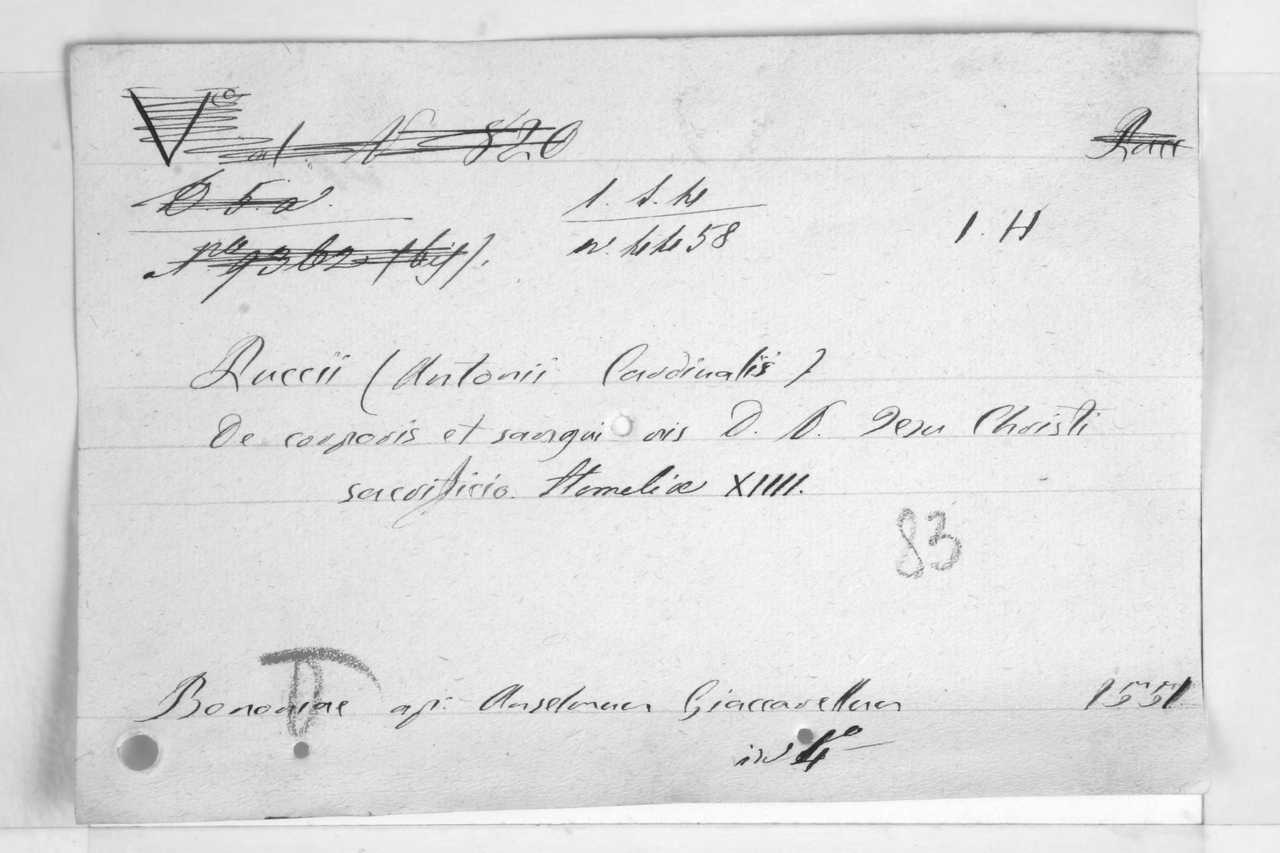 Vol. N 820
D. 5. a.
1. S. 4
n. 4458
1. H
Puccii (Antonii Cardinalis)
De corporis et sangui nis D. N. Jesu Christi
sacrificio. Homeliæ XIIII.
83
Bononiae ap: Anselmum Giaccarellum 1551
in 4°